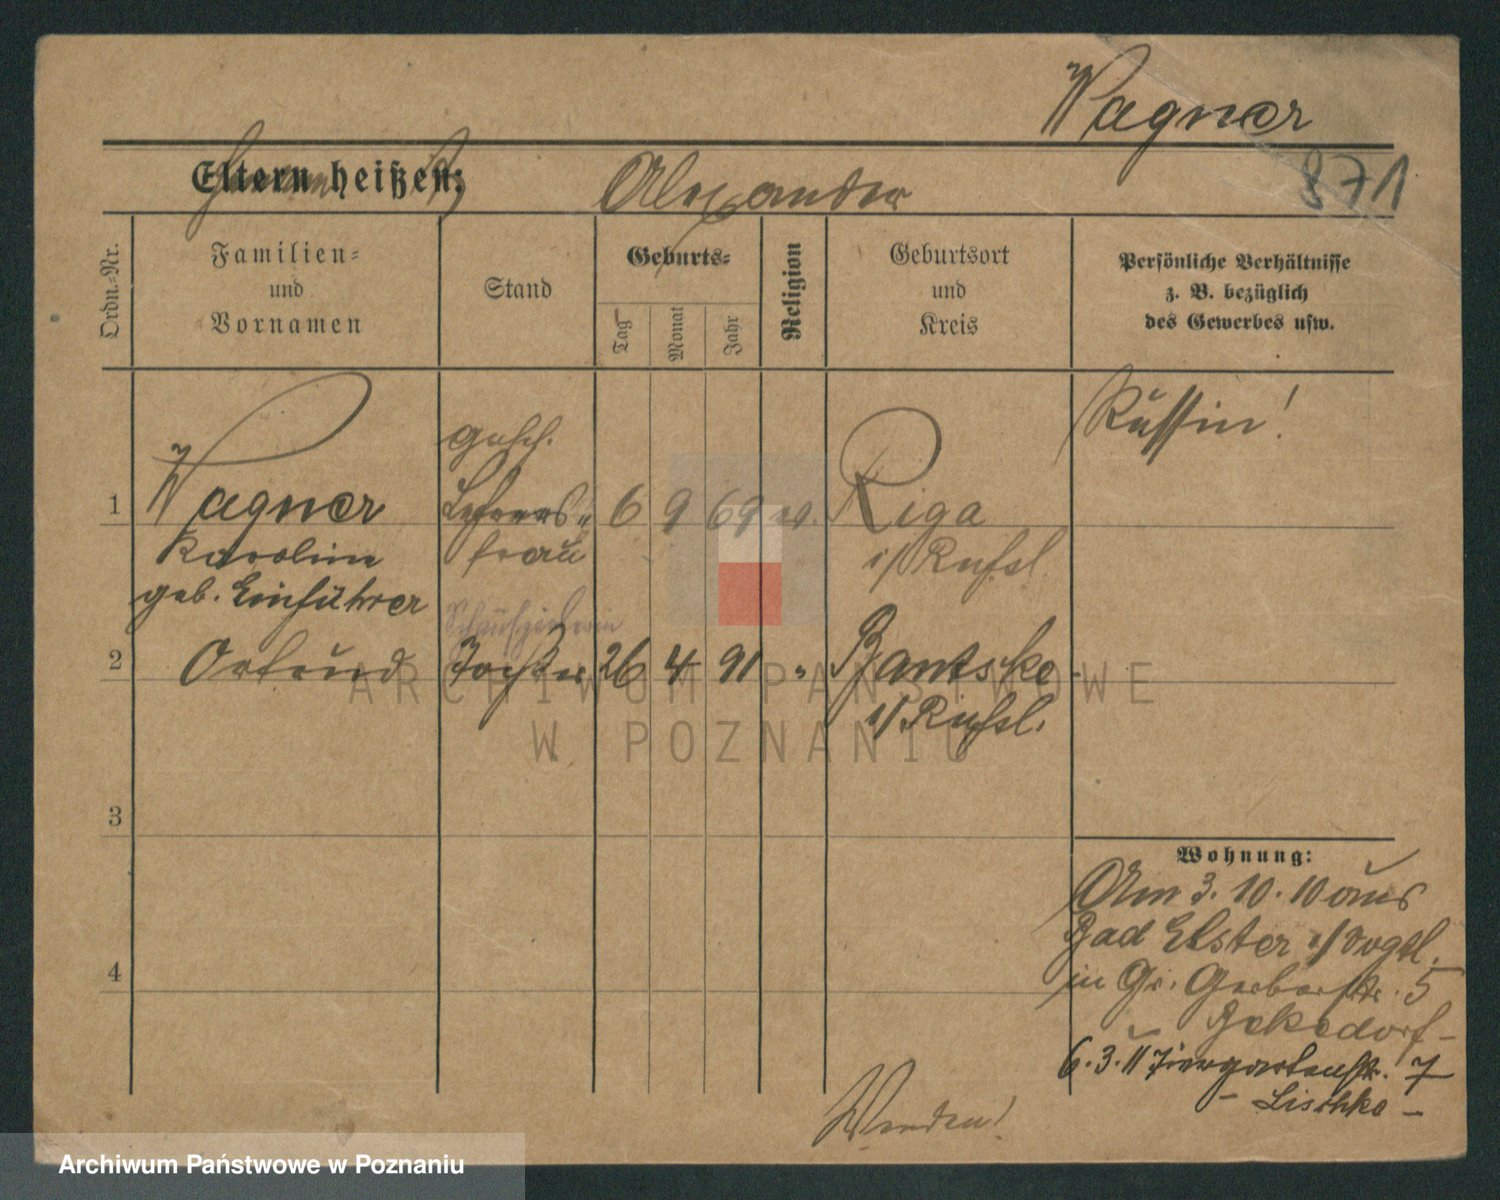 Wagner
871
Eltern heißen:
Alexander
Ordn.-Nr.
Familien-
und
Vornamen
Stand
Geburts-
Tag
Monat
Jahr
Religion
Geburtsort
und
Kreis
Persönliche Verhältnisse
z. B. bezüglich
des Gewerbes usw.
Russin!
1
Wagner
Karoline
geb. Einführer
gesch.
Lehrers-
frau
6 9 69 ev.
Riga
i/Rußl.
2
Ortrud
Schauspielerin
Tochter
26 4 91 "
Bantske
i/Rußl.
3
4
Wohnung:
Am 3. 10. 10 aus
Bad Elster i/Vogtl.
in Gr. Gerberstr. 5
6. 3. 11 Tiergartenstr. 7
- Lischke -
Wenden!
ARCHIWUM PAŃSTWOWE
W POZNANIU
Archiwum Państwowe w Poznaniu